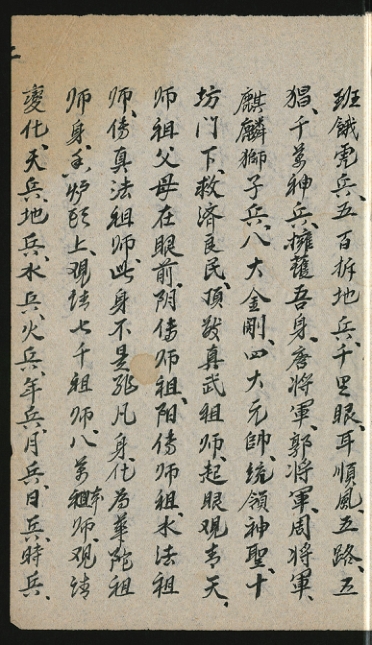 班餓虎兵、五百拆地兵、千里眼、耳順風、五路、五
猖、千萬神兵、擁護吾身、唐將軍、郭將軍、周將軍、
麒麟獅子兵、八大金剛、四大元帥、統領神聖、十
坊門下、救济良民、頂敬真武祖师、起眼观青天、
师祖父母在眼前、阴傳师祖、阳傳师祖、水法祖
师、傳真法祖师、此身不是非凡身、化為華陀祖
师身、香炉头上观請七千祖师、八萬祖本师、观請
变化、天兵、地兵、水兵、火兵、年兵、月兵、日兵、時兵、